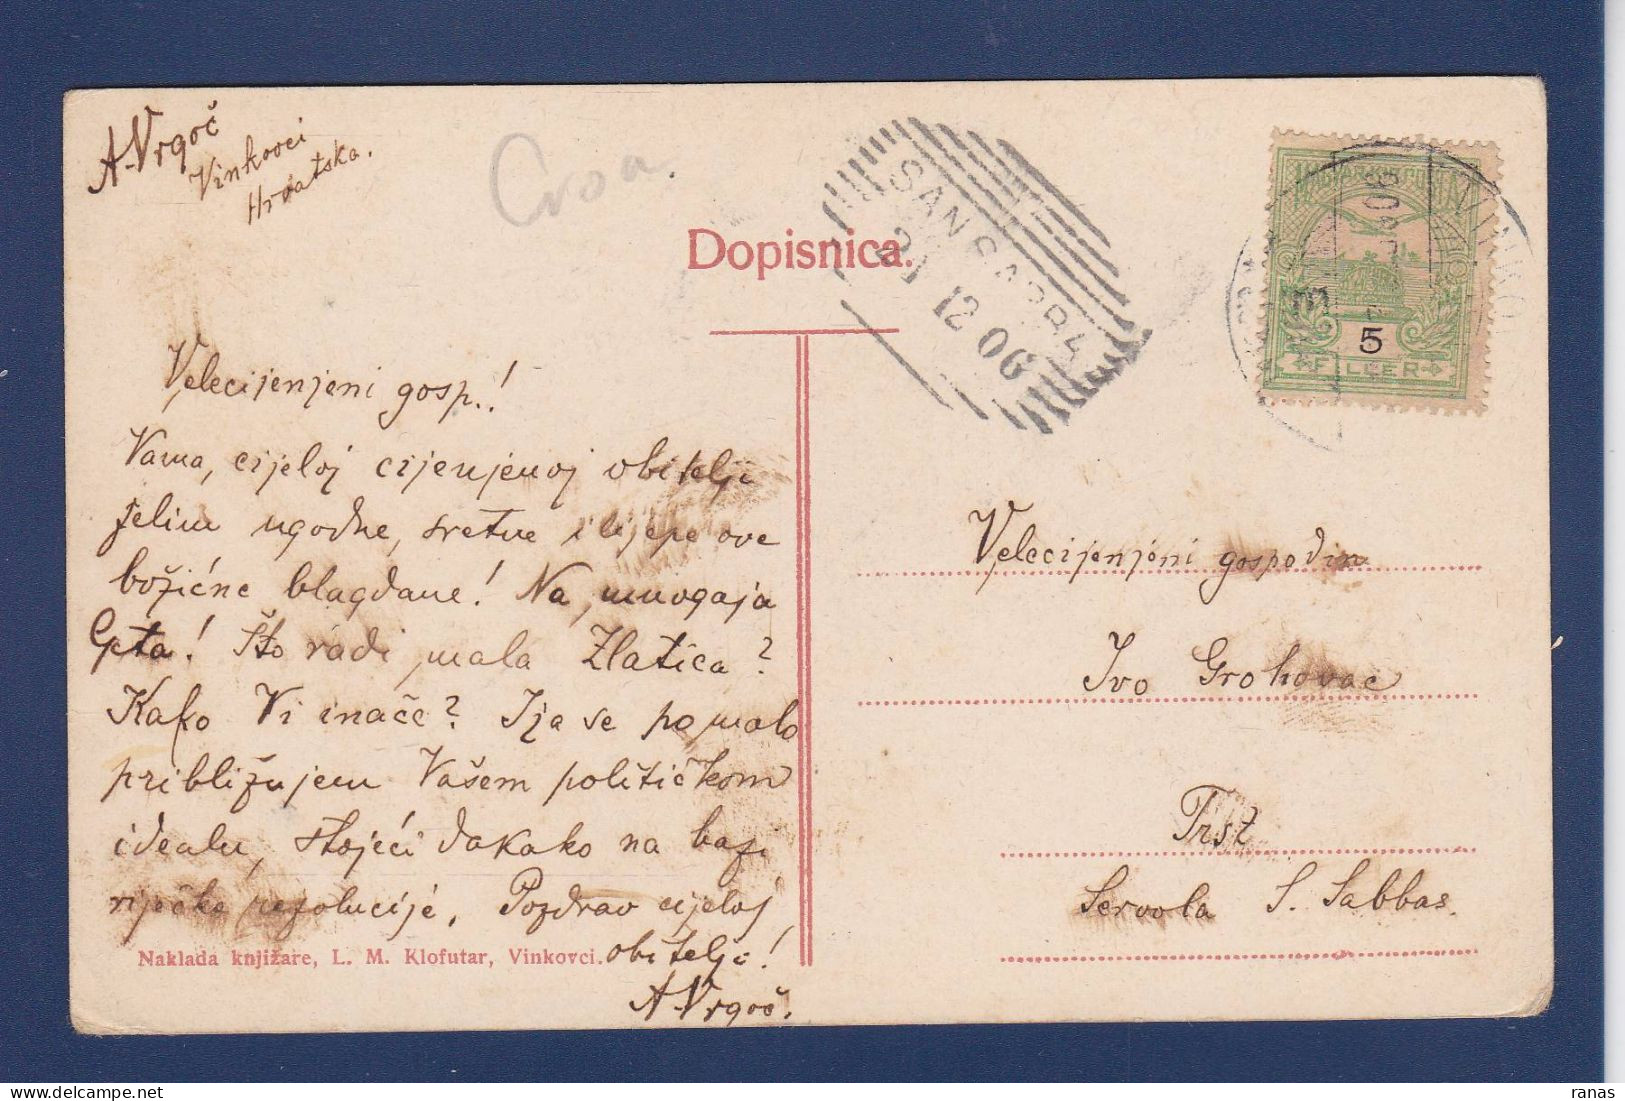 A. Vrgoč
Vinkovci
Hrvatska.
Croa.
Dopisnica.
SAN SABBA
12 06
MAGYAR KIR. POSTA
5
FILLER
VINKO
Velecijenjeni gosp.!
Vama, cijeloj cijenjenoj obitelji
želim ugodne, sretne i lijepe ove
božićne blagdane! Na mnogaja
ljeta! Što radi mala Zlatica?
Kako Vi inače? I ja se pomalo
približujem Vašem političkom
idealu, stojeći dakako na bazi
riječke rezolucije. Pozdrav cijeloj
obitelji!
A. Vrgoč.
Naklada knjižare, L. M. Klofutar, Vinkovci.
Velecijenjeni gospodin
Ivo Grohovac
Trst
Servola S. Sabbas.
ranas